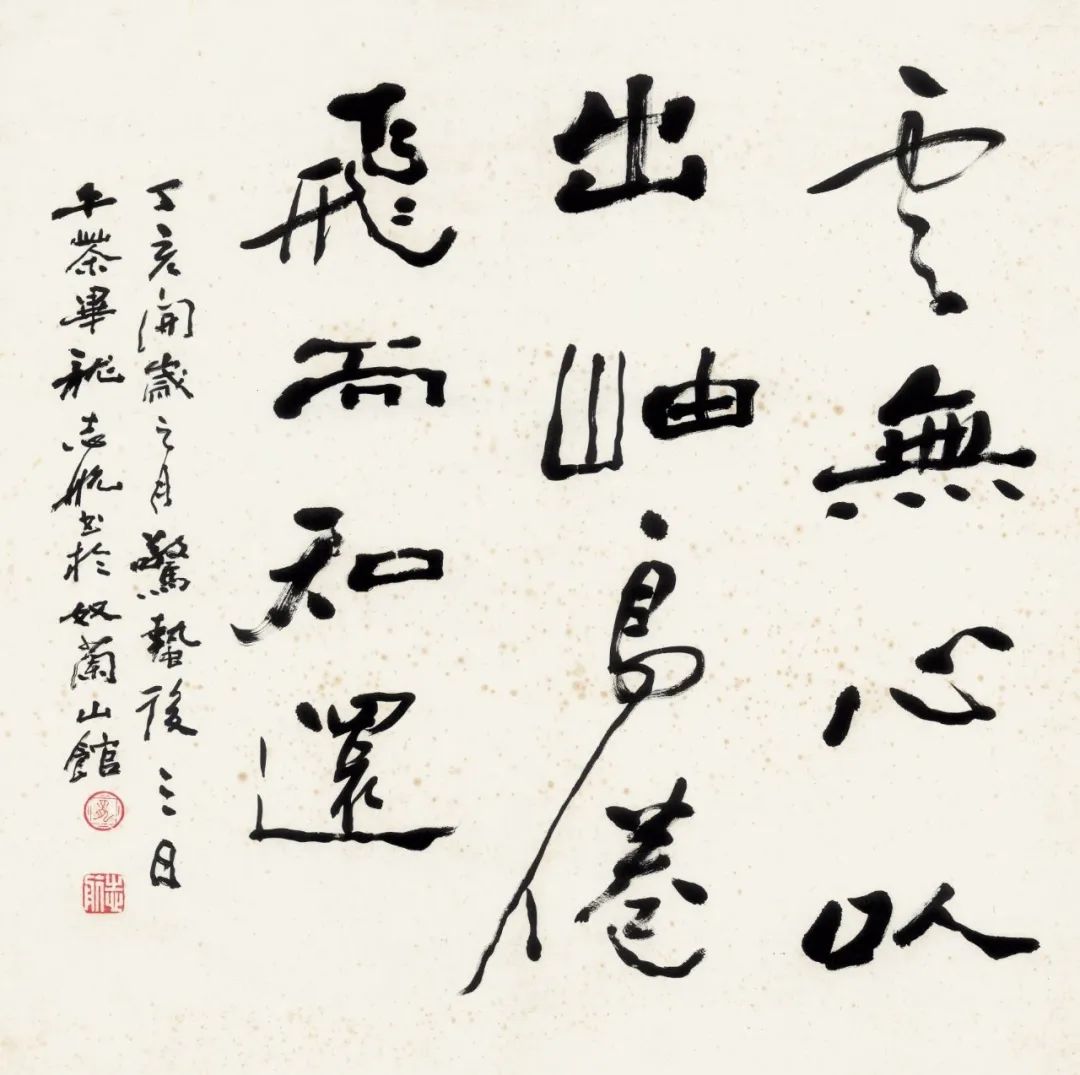 雲無心以
出岫鳥倦
飛而知還
丁亥開歲之月驚蟄後三日
午茶畢龍志航書於奴蘭山館